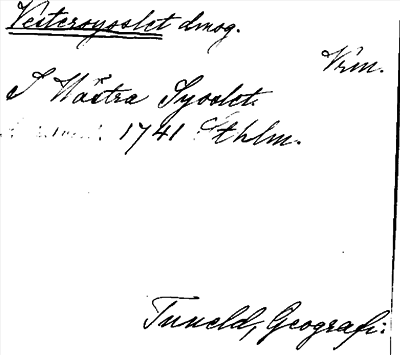 Vestersyoslet dmog.
Vrm.
S Wästra Syoslet
1741 Sthlm.
Tuneld, Geografi: